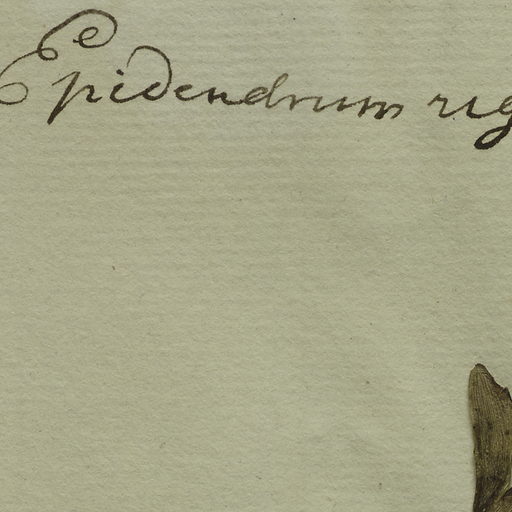 Epidendrum rig